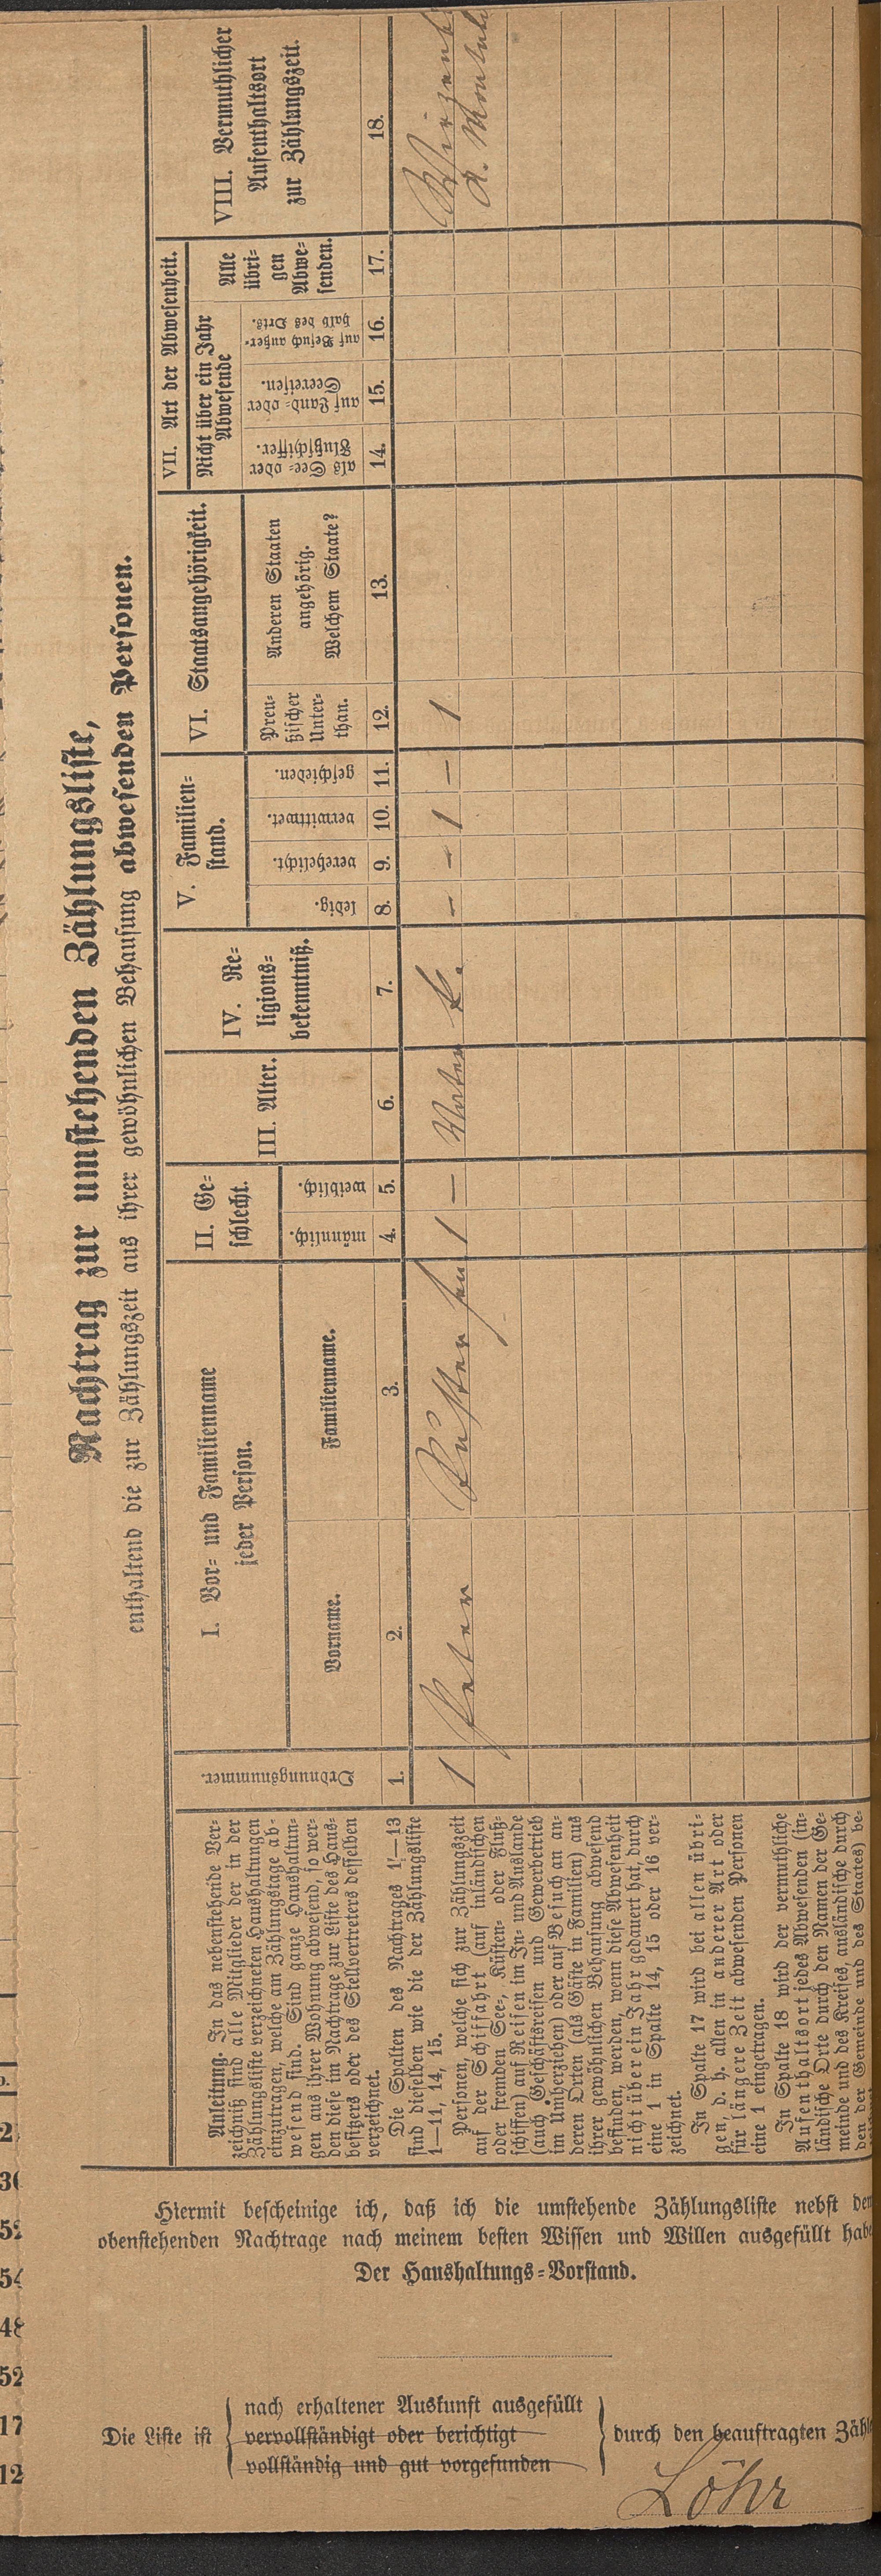 Nachtrag zur umstehenden Zählungsliste,
enthaltend die zur Zählungszeit aus ihrer gewöhnlichen Behausung abwesenden Personen.
Anleitung. In das nebenstehende Ver-
zeichniß sind alle Mitglieder der in der
Zählungsliste verzeichneten Haushaltungen
einzutragen, welche am Zählungstage ab-
wesend sind. Sind ganze Haushaltun-
gen aus ihrer Wohnung abwesend, so wer-
den diese im Nachtrage zur Liste des Haus-
besitzers oder des Stellvertreters desselben
verzeichnet.
Die Spalten des Nachtrages 1—13
sind dieselben wie die der Zählungsliste
1—11, 14, 15.
Personen, welche sich zur Zählungszeit
auf der Schiffahrt (auf inländischen
oder fremden See-, Küsten- oder Fluß-
schiffen) auf Reisen im In- und Auslande
(auch Geschäftsreisen und Gewerbetrieb
im Umherziehen) oder auf Besuch an an-
deren Orten (als Gäste in Familien) aus
ihrer gewöhnlichen Behausung abwesend
befinden, werden, wenn diese Abwesenheit
nicht über ein Jahr gedauert hat, durch
eine 1 in Spalte 14, 15 oder 16 ver-
zeichnet.
In Spalte 17 wird bei allen übri-
gen, d. h. allen in anderer Art oder
für längere Zeit abwesenden Personen
eine 1 eingetragen.
In Spalte 18 wird der vermuthliche
Aufenthaltsort jedes Abwesenden (in-
ländische Orte durch den Namen der Ge-
meinde und des Kreises, ausländische durch
den der Gemeinde und des Staates) be-
Ordnungsnummer.
I. Vor- und Familienname
jeder Person.
Vorname.
Familienname.
II. Ge-
schlecht.
männlich.
weiblich.
III. Alter.
IV. Re-
ligions-
bekenntniß.
V. Familien-
stand.
ledig.
verehelicht.
verwittwet.
geschieden.
VI. Staatsangehörigkeit.
Preu-
ßischer
Unter-
than.
Anderen Staaten
angehörig.
Welchem Staate?
VII. Art der Abwesenheit.
Nicht über ein Jahr
Abwesende
als See- oder
Flußschiffer.
auf Land- oder
Seereisen.
auf Besuch außer-
halb des Orts.
Alle
übri-
gen
Abwe-
senden.
VIII. Vermuthlicher
Aufenthaltsort
zur Zählungszeit.
1. 2. 3. 4. 5. 6. 7. 8. 9. 10. 11. 12. 13. 14. 15. 16. 17. 18.
1 Peter 1 — Vater k. — — 1 — 1
Hiermit bescheinige ich, daß ich die umstehende Zählungsliste nebst dem
obenstehenden Nachtrage nach meinem besten Wissen und Willen ausgefüllt habe
Der Haushaltungs-Vorstand.
Die Liste ist
nach erhaltener Auskunft ausgefüllt
vervollständigt oder berichtigt
vollständig und gut vorgefunden
durch den beauftragten Zähl
Löhr